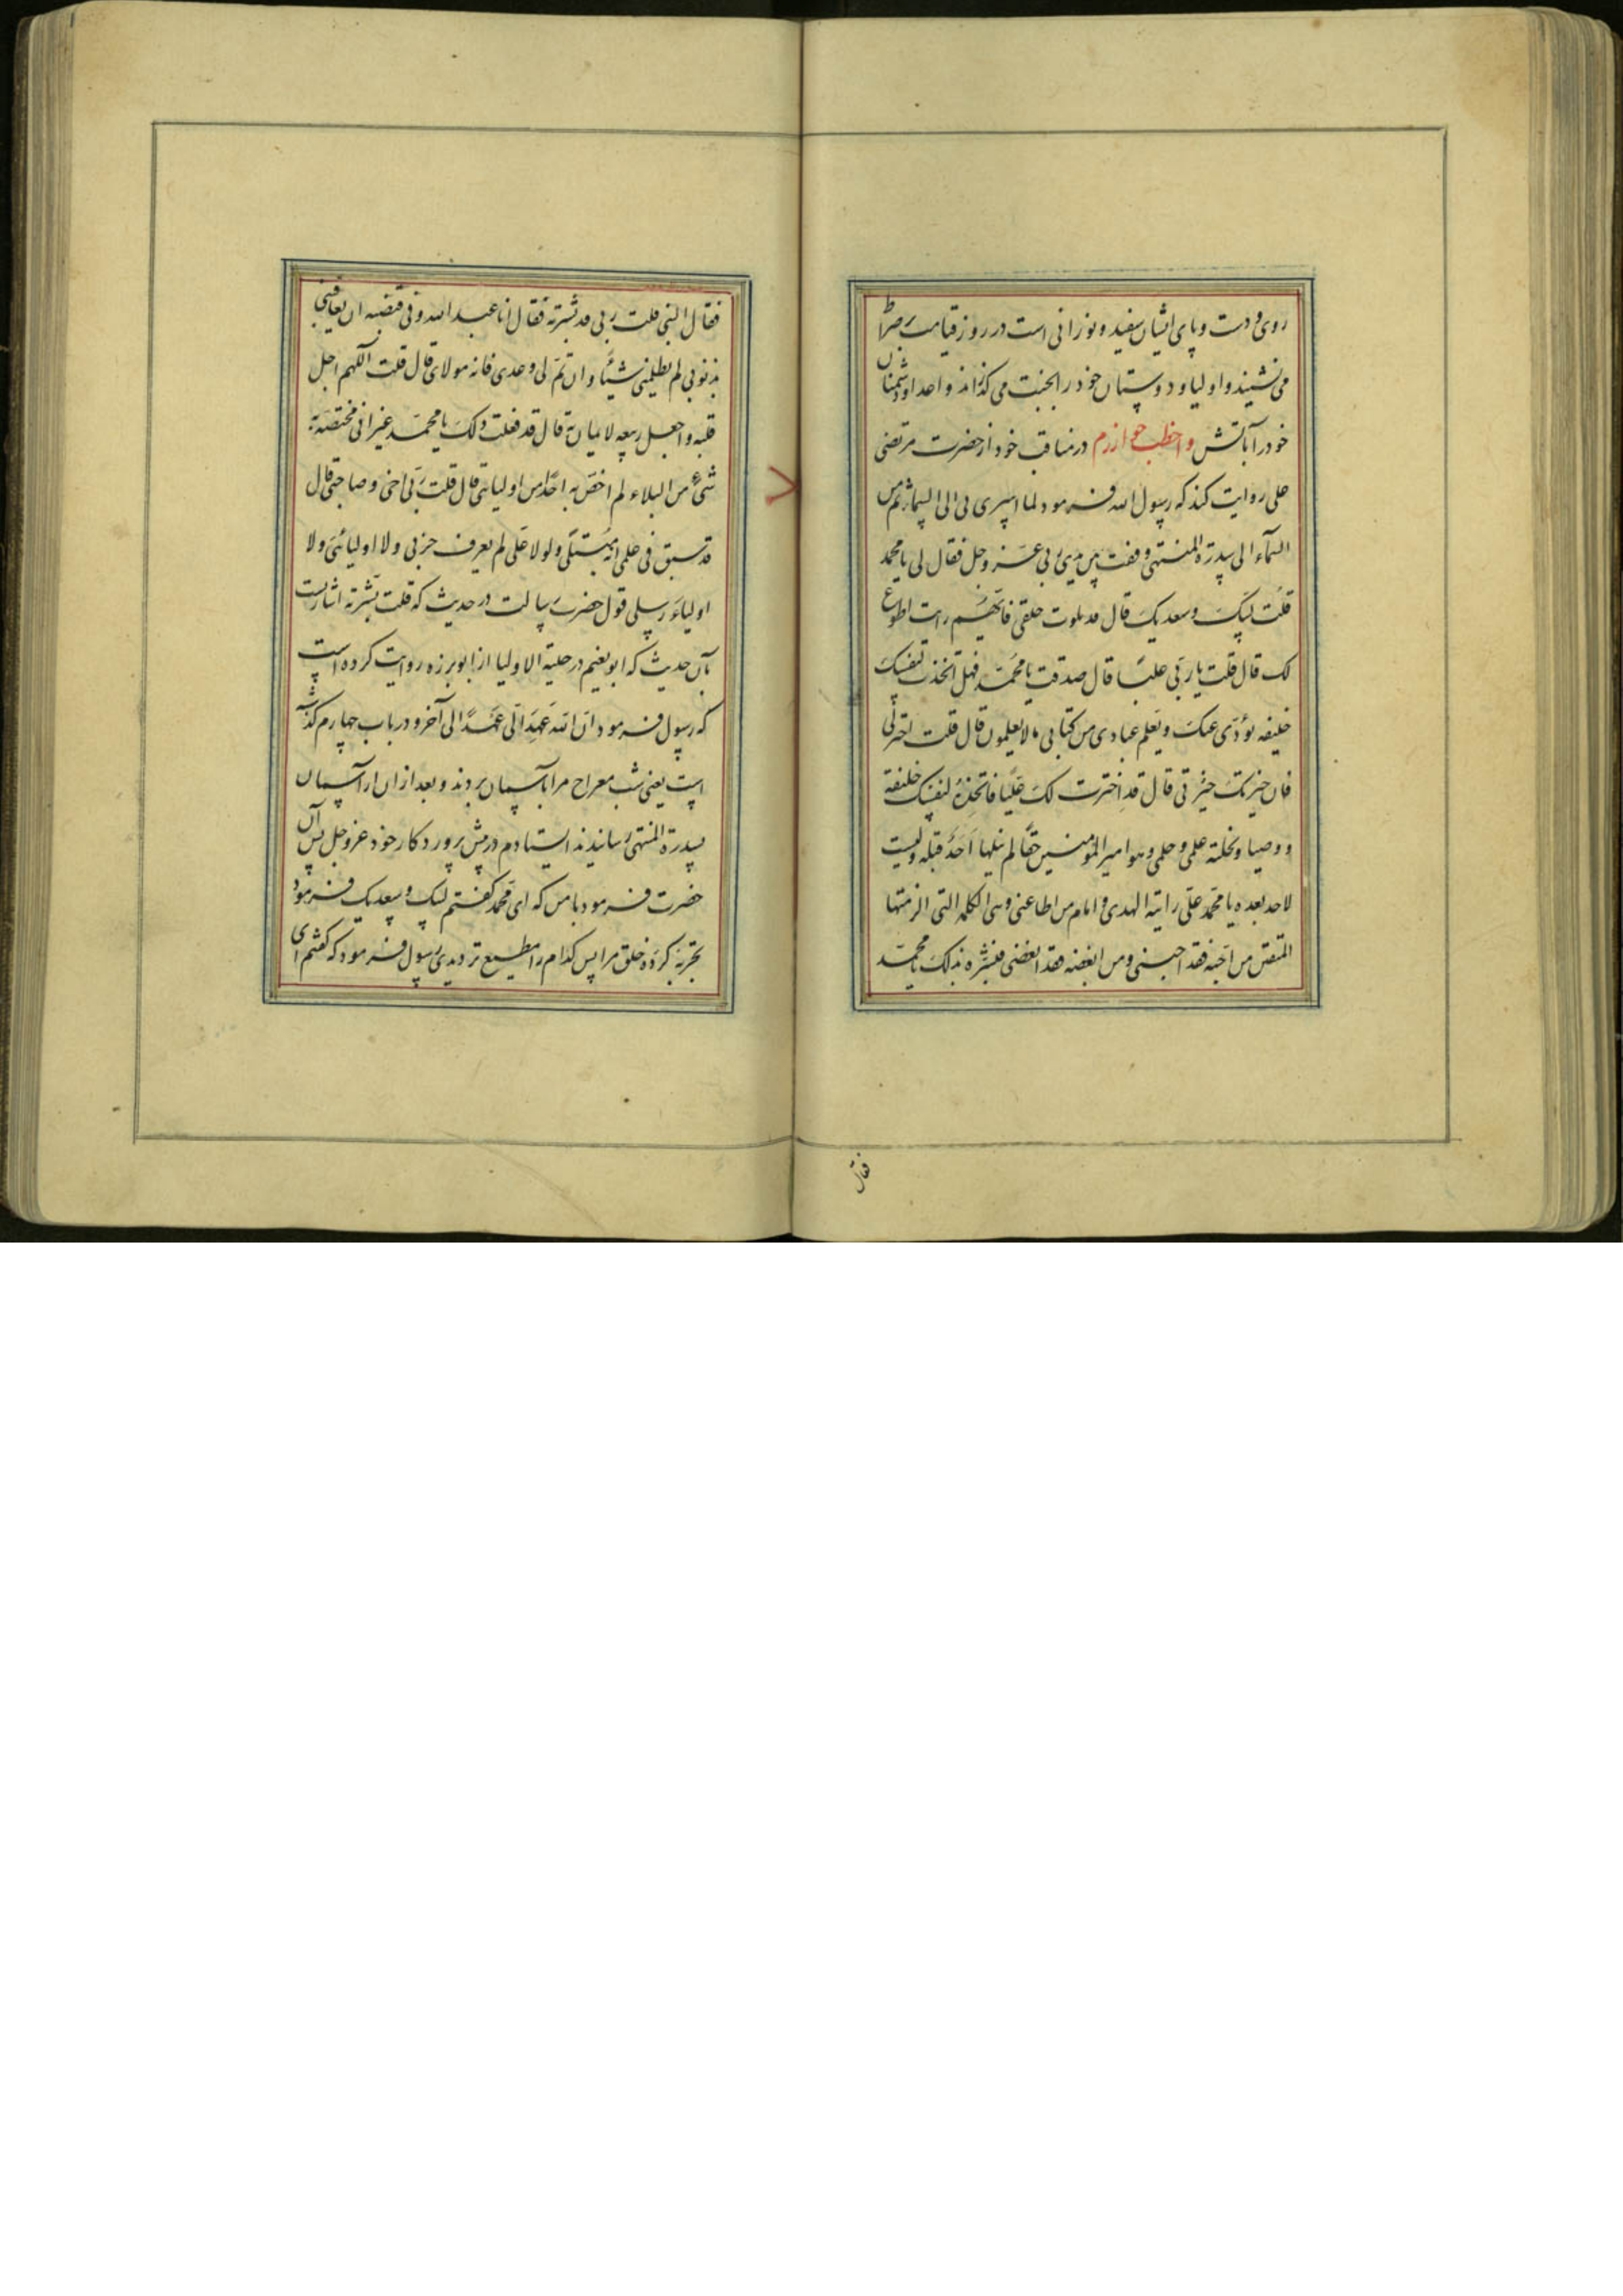 روی و دست و پای ایشان سفید و نورانی است در روز قیامت بر صراط
می نشیند و اولیا و دوستان خود را بجنت می گذراند و اعدا و دشمنان
خود را بآتش و اخطب خوارزم در مناقب خود از حضرت مرتضی
علی روایت کند که رسول الله فرمود لما اسری بی الی السماء ثم من
السمآء الی سدرة المنتهی وقفت بین یدی ربی عز وجل فقال لی یا محمد
قلت لبیک و سعدیک قال قد بلوت خلقی فایهم رایت اطوع
لک قال قلت یا ربی علیا قال صدقت یا محمد فهل اتخذت لنفسک
خلیفه یؤدی عنک و یعلم عبادی من کتابی ما لا یعلمون قال قلت اختر لی
فان خیرتک خیرتی قال قد اخترت لک علیا فاتخذه لنفسک خلیفة
و وصیا و نحلته علمی و حلمی و هو امیر المؤمنین حقا لم ینلها احد قبله و لیست
لاحد بعده یا محمد علی رایة الهدی و امام من اطاعنی و هی الکلمه التی الزمتها
المتقین من احبه فقد احبنی و من ابغضه فقد ابغضنی فبشره بذلک یا محمد
فقال
فقال النبی قلت ربی قد بشرته فقال انا عبد الله و فی قبضته ان یعاقبنی
بذنوبی لم یظلمنی شیئا و ان تم لی وعدی فانه مولای قال قلت اللهم اجل
قلبه و اجعل ربیعه الایمان به قال قد فعلت ذلک یا محمد غیر انی مختصه به
شیء من البلاء لم اخص به احدا من اولیائی قال قلت ربی اخی و صاحبی قال
قد سبق فی علمی انه مبتلی و لولا علی لم یعرف حزبی و لا اولیائی و لا
اولیاء رسلی قول حضرت رسالت در حدیث که قلت بشرته اشارتست
بآن حدیث که ابو نعیم در حلیة الاولیا از ابو برزه روایت کرده است
که رسول فرمود ان الله عهد الی عهدا الی آخر و در باب چهارم گذشته
است یعنی شب معراج مرا بآسمان بردند و بعد از ان از آسمان
بسدرة المنتهی رسانیدند ایستادم در پیش پروردگار خود عز وجل پس آن
حضرت فرمود با من که ای محمد گفتم لبیک و سعدیک فرمود
تجربه کرده خلق مرا پس کدام را مطیع تر دیدی رسول فرمود که گفتم ای